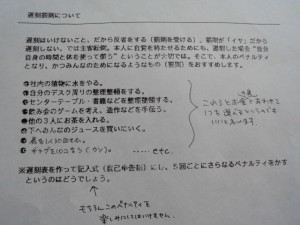 遅刻罰則について
遅刻はいけないこと。だから反省をする(罰則を受ける)。罰則が「イヤ」だから
遅刻しない。では主客転倒。本人に自覚を持たせるためにも、遅刻した場合"自分
自身の時間と体を使って償う"ということが大切では。そこで、本人のペナルティ
となり、かつみんなのためになるようなもの(罰則)をおすすめします。
❶社内の植物に水をやる。
❷自分のデスク周りの整理整頓をする。
❸センターテーブル・書籠などを整理整頓する。
❹飲み会のゲームを考え、進作などを手伝う。
❺他の3人にお茶を入れる。
❻下へみんなのジュースを買いにいく。
etc.
※遅刻表を作って記入式(自己申告制)にし、5回ごとにさらなるペナルティをかす
というのはどうでしょう。
もちろんこのペナルティを
楽しみにしてはいけません。